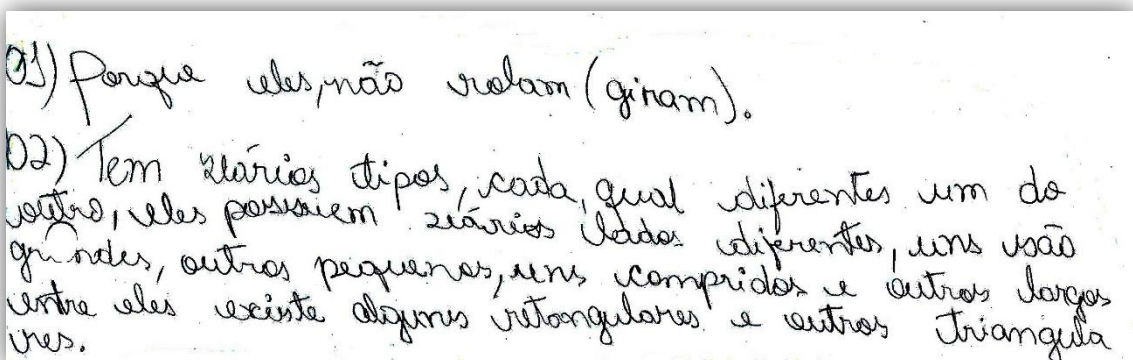 01) Porque eles, não rolam (giram).
02) Tem vários tipos, cada, qual diferentes um do
outro, eles possuem vários lados diferentes, uns são
grandes, outros pequenos, uns compridos e outros largos
entre eles existe alguns retangulares e outros triangula
res.